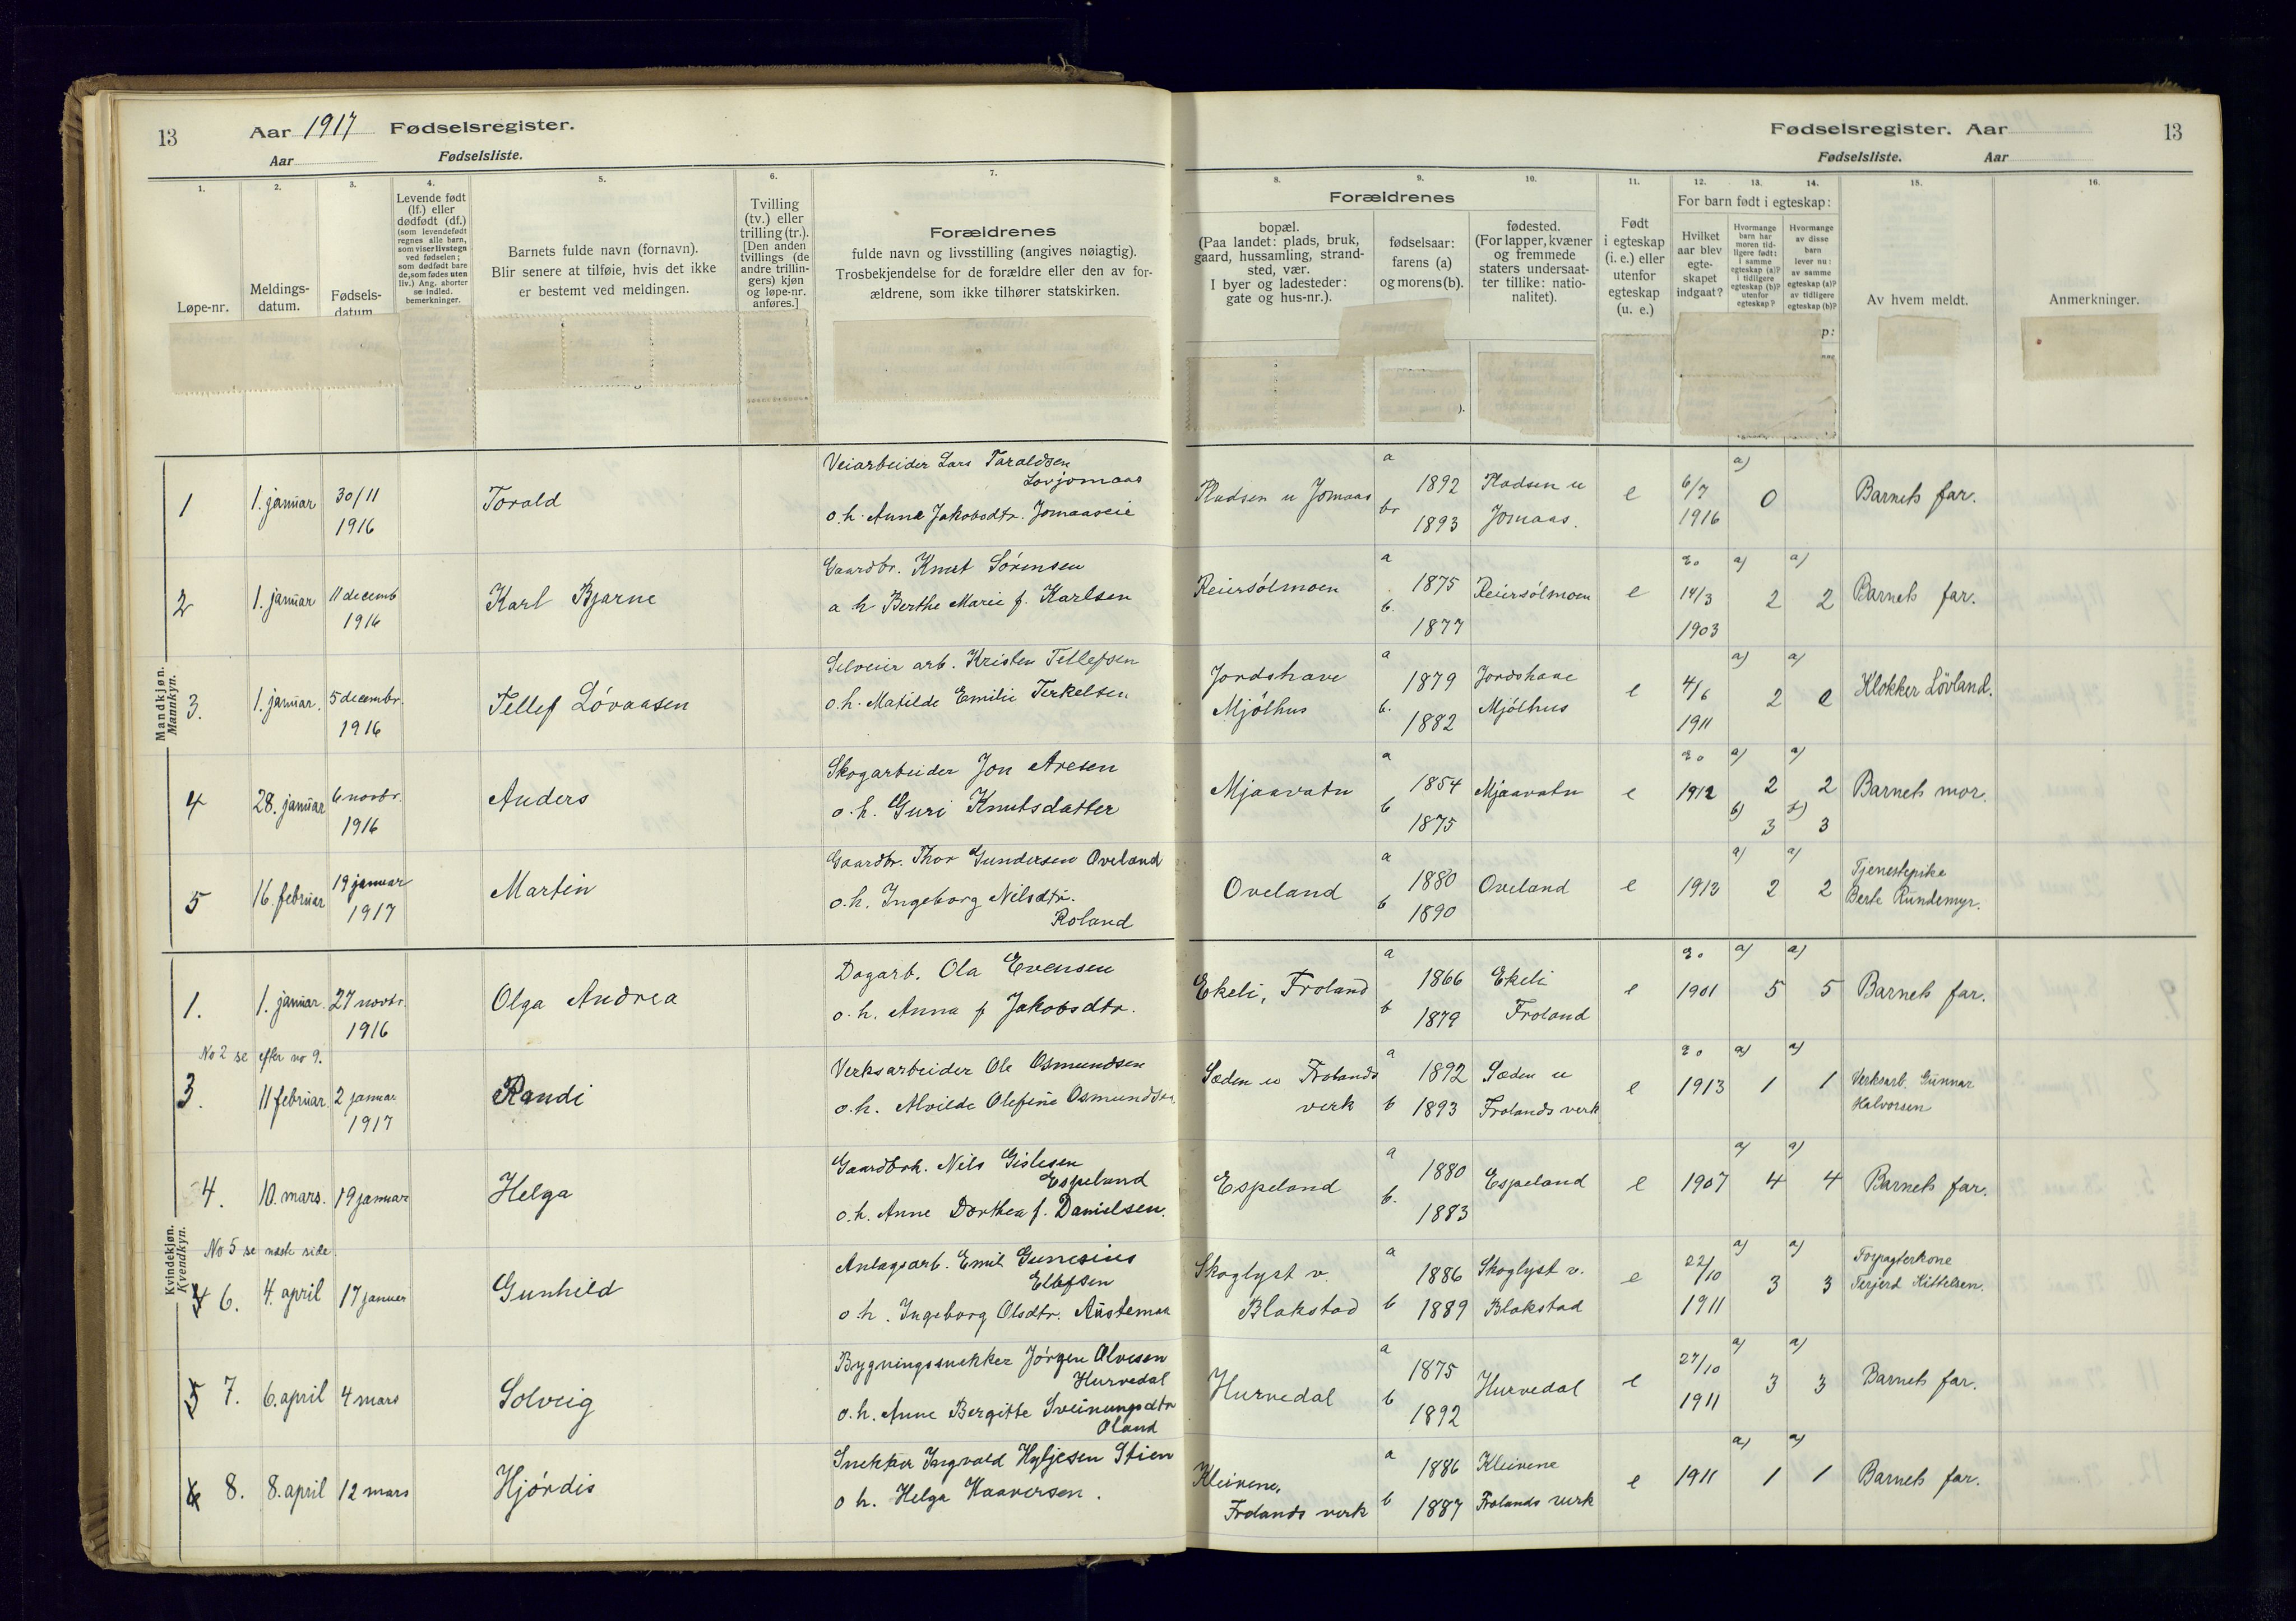 13
Aar 1917 Fødselsregister.
Aar Fødselsliste.
1.
2.
3.
4.
5.
6.
7.
Løpe-nr.
Meldings-
datum.
Fødsels-
datum
Levende født
(lf.) eller
dødfødt (df.)
(som levendefødt
regnes alle barn,
som viser livstegn
ved fødselen;
som dødfødt bare
de, som fødes uten
liv.) Ang. aborter
se indled.
bemerkninger.
Barnets fulde navn (fornavn).
Blir senere at tilføie, hvis det ikke
er bestemt ved meldingen.
Tvilling
(tv.) eller
trilling (tr.).
[Den anden
tvillings (de
andre trillin-
gers) kjøn
og løpe-nr.
anføres.]
Forældrenes
fulde navn og livsstilling (angives nøiagtig).
Trosbekjendelse for de forældre eller den av for-
ældrene, som ikke tilhører statskirken.
Fødselsregister. Aar 13
Fødselsliste. Aar
8.
9.
10.
11.
12.
13.
14.
15.
16.
Forældrenes
bopæl.
(Paa landet: plads, bruk,
gaard, hussamling, strand-
sted, vær.
I byer og ladesteder:
gate og hus-nr.).
fødselsaar:
farens (a)
og morens (b).
fødested.
(For lapper, kvæner
og fremmede
staters undersaat-
ter tillike: natio-
nalitet).
Født
i egteskap
(i. e.) eller
utenfor
egteskap
(u. e.)
For barn født i egteskap:
Hvilket
aar blev
egte-
skapet
indgaat?
Hvormange
barn har
moren tid-
ligere født:
i samme
egteskap (a)?
i tidligere
egteskap (b)?
utenfor
egteskap?
Hvormange
av disse
barn
lever nu:
av samme
egteskap (a)?
av tidligere
egteskap (b)?
Av hvem meldt.
Anmerkninger.
Mandkjøn.
Mannkyn.
1 1. januar 30/11 1916 Torald
Veiarbeider Lars Taraldsen
Lovjomaas
o.h. Anna Jakobsdtr. Jomaaseie
Pladsen u Jomaas a 1892 br 1893 Pladsen u Jomaas. e 6/7 1916 a) 0 Barnets far.
2 1. januar 11 decemb 1916 Karl Bjarne
Gaardbr. Knut Sörensen
a h Berthe Marie f. Karlsen
Reiersölmoen a 1875 b. 1877 Reiersölmoen e 14/3 1903 a) 2 a) 2 Barnets far.
3. 1. januar. 5 decembr. 1916 Tellef Lövaasen
arb. Kristen Tellefsen
o.h. Matilde Emilie Terkelsen
Jordshave Mjölhus a 1879 b. 1882 Jordshave Mjölhus e 4/6 1911 a) 2 a) Klokker Lövland.
4 28. januar 6 novbr. 1916 Anders
Skogarbeider Jon Aresen
o.h. Guri Knutsdatter
Mjaavatn a 1854 b 1875 Mjaavatn e 1912 a) 2 b) 3 a) 2 b) 3 Barnets mor.
5 16. februar 19 januar 1917 Martin
Gaardbr. Thor Gundersen Oveland
o.h. Ingeborg Nilsdtr.
Roland
Oveland a 1880 b 1890 Oveland e 1913 a) 2 a) 2 Tjenestepike
Berte Rundemyr.
Kvindekjøn.
Kvendkyn.
1. 1. januar. 27 novbr. 1916 Olga Andrea
Dagarb. Ola Evensen
o.h. Anna f Jakobsdtr.
Ekeli, Froland a 1866 b 1879 Ekeli Froland e 1901 a) 5 a) 5 Barnets far.
No 2 se efter no 9.
3. 11 februar. 2 januar 1917 Randi
Verksarbeider Ole Osmundsen
o.h. Alvilde Olefine Osmundsen
Sæden u Frolands verk a 1892 b 1893 Sæden u Frolands verk e 1913 a) 1 a) 1 Verksarb. Gunnar
Halvorsen
4. 10. mars. 19 januar Helga
Gaardbrk. Nils Gislesen
Espeland
o.h. Anne Dorthea f. Danielsen.
Espeland a 1880 b. 1883 Espeland e 1907 a) 4 a) 4 Barnets far.
No 5 se næste side.
6. 4. april 17 januar Gunhild
Anlagsarb. Emil Gunesius
Ellefsen
o.h. Ingeborg Olsdtr. Austemaa
Skoglyst v. Blakstad a 1886 b 1889 Skoglyst v. Blakstad e 22/10 1911 a) 3 a) 3 Forpagterkone
Terjerd Kittelsen.
5 7. 6. april 4 mars Solveig
Bygningssnekker Jörgen Alvesen
Hurvedal
o.h. Anne Bergitte Sveinungsdtr
Oland
Hurvedal a 1875 b 1892 Hurvedal e 27/10 1911 a) 3 a) 3 Barnets far.
6 8. 8. april 12 mars Hjördis
Snekker Ingvald Hyljesen Stien
o h. Helga Haaversen.
Kleivene, Frolands verk a 1886 b 1887 Kleivene Frolands verk e 1911 a) 1 a) 1 Barnets far.